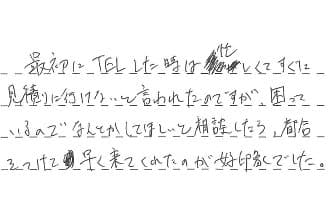 最初にTELした時は忙しくてすぐに
見積りに行けないと言われたのですが、困って
いるのでなんとかしてほしいと相談したら、都合
をつけて早く来てくれたのが好印象でした。